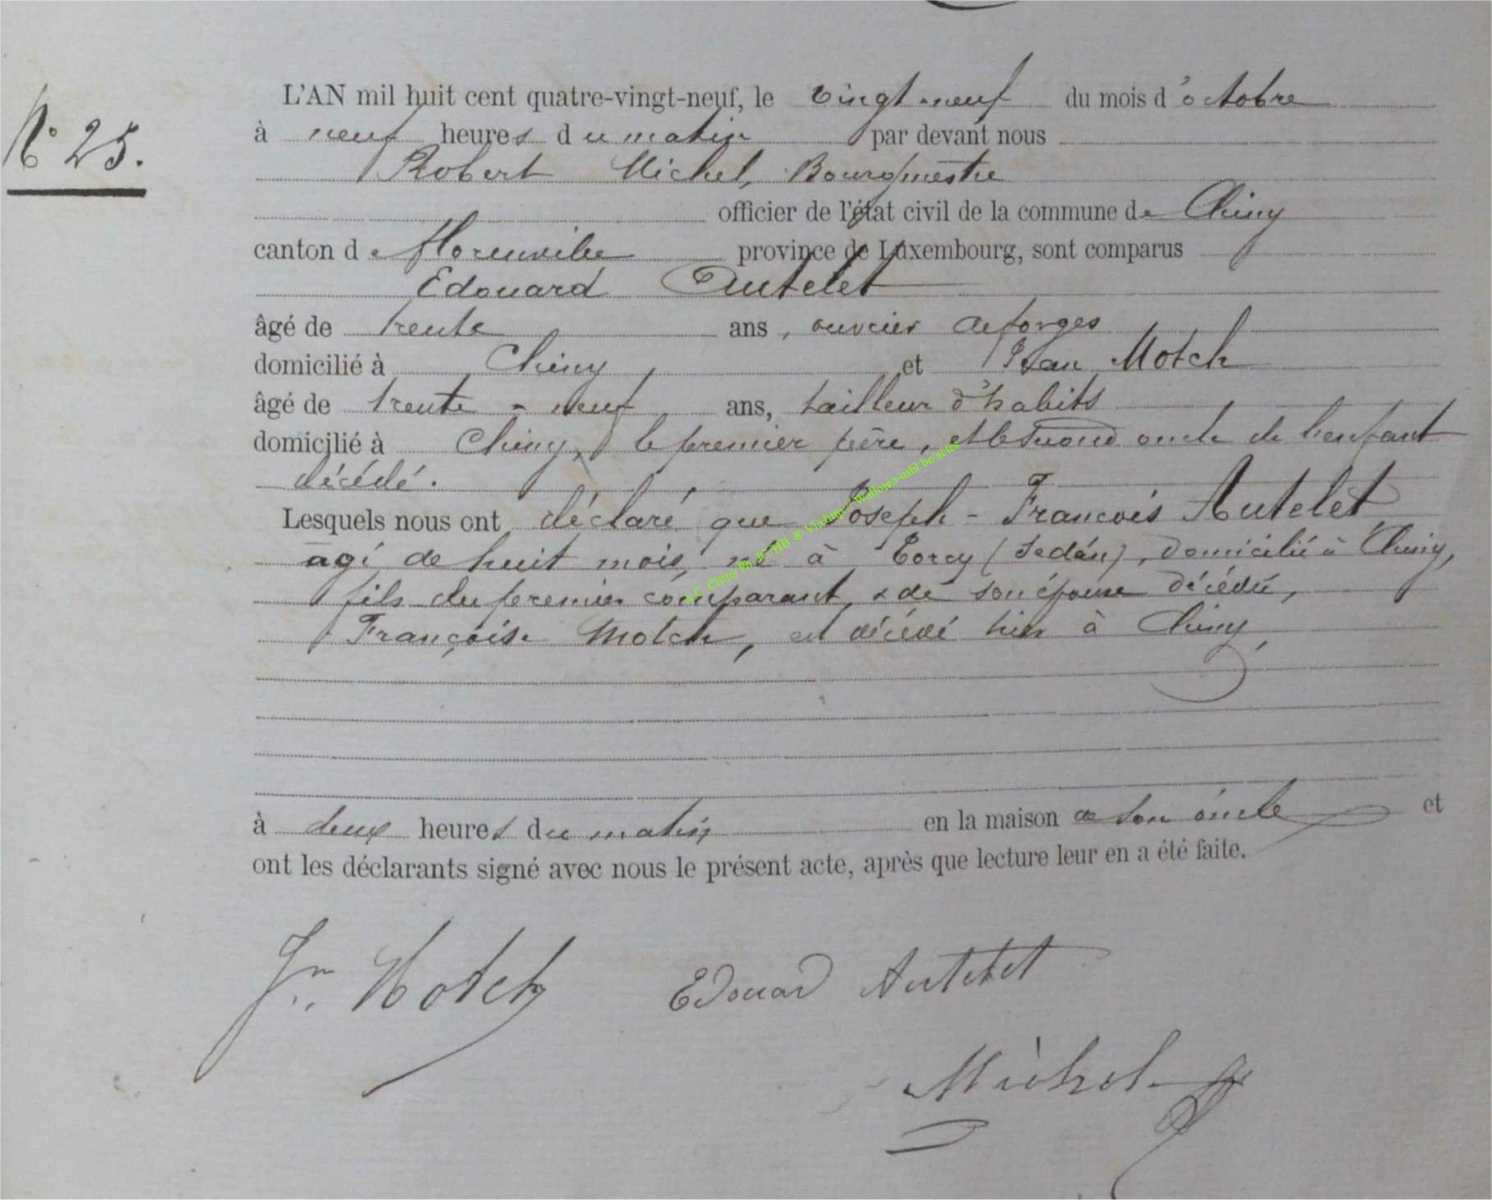 N° 25.
L'AN mil huit cent quatre-vingt-neuf, le vingt-neuf du mois d'octobre
à neuf heures du matin par devant nous
Robert Michel, Bourgmestre
officier de l'état civil de la commune de Chiny
canton de Florenville province de Luxembourg, sont comparus
Edouard Autelet
âgé de trente ans, ouvrier de forges
domicilié à Chiny, et Jean Motch
âgé de trente-neuf ans, tailleur d'habits
domicilié à Chiny, le premier père, et le second oncle de l'enfant
décédé.
Lesquels nous ont déclaré que Joseph-François Autelet
âgé de huit mois, né à Torcy (Sedan), domicilié à Chiny,
fils du premier comparant, & de son épouse décédée,
Françoise Motch, est décédé hier à Chiny,
à deux heures du matin en la maison de son oncle et
ont les déclarants signé avec nous le présent acte, après que lecture leur en a été faite.
Jn. Motch Edouard Autelet
Michel